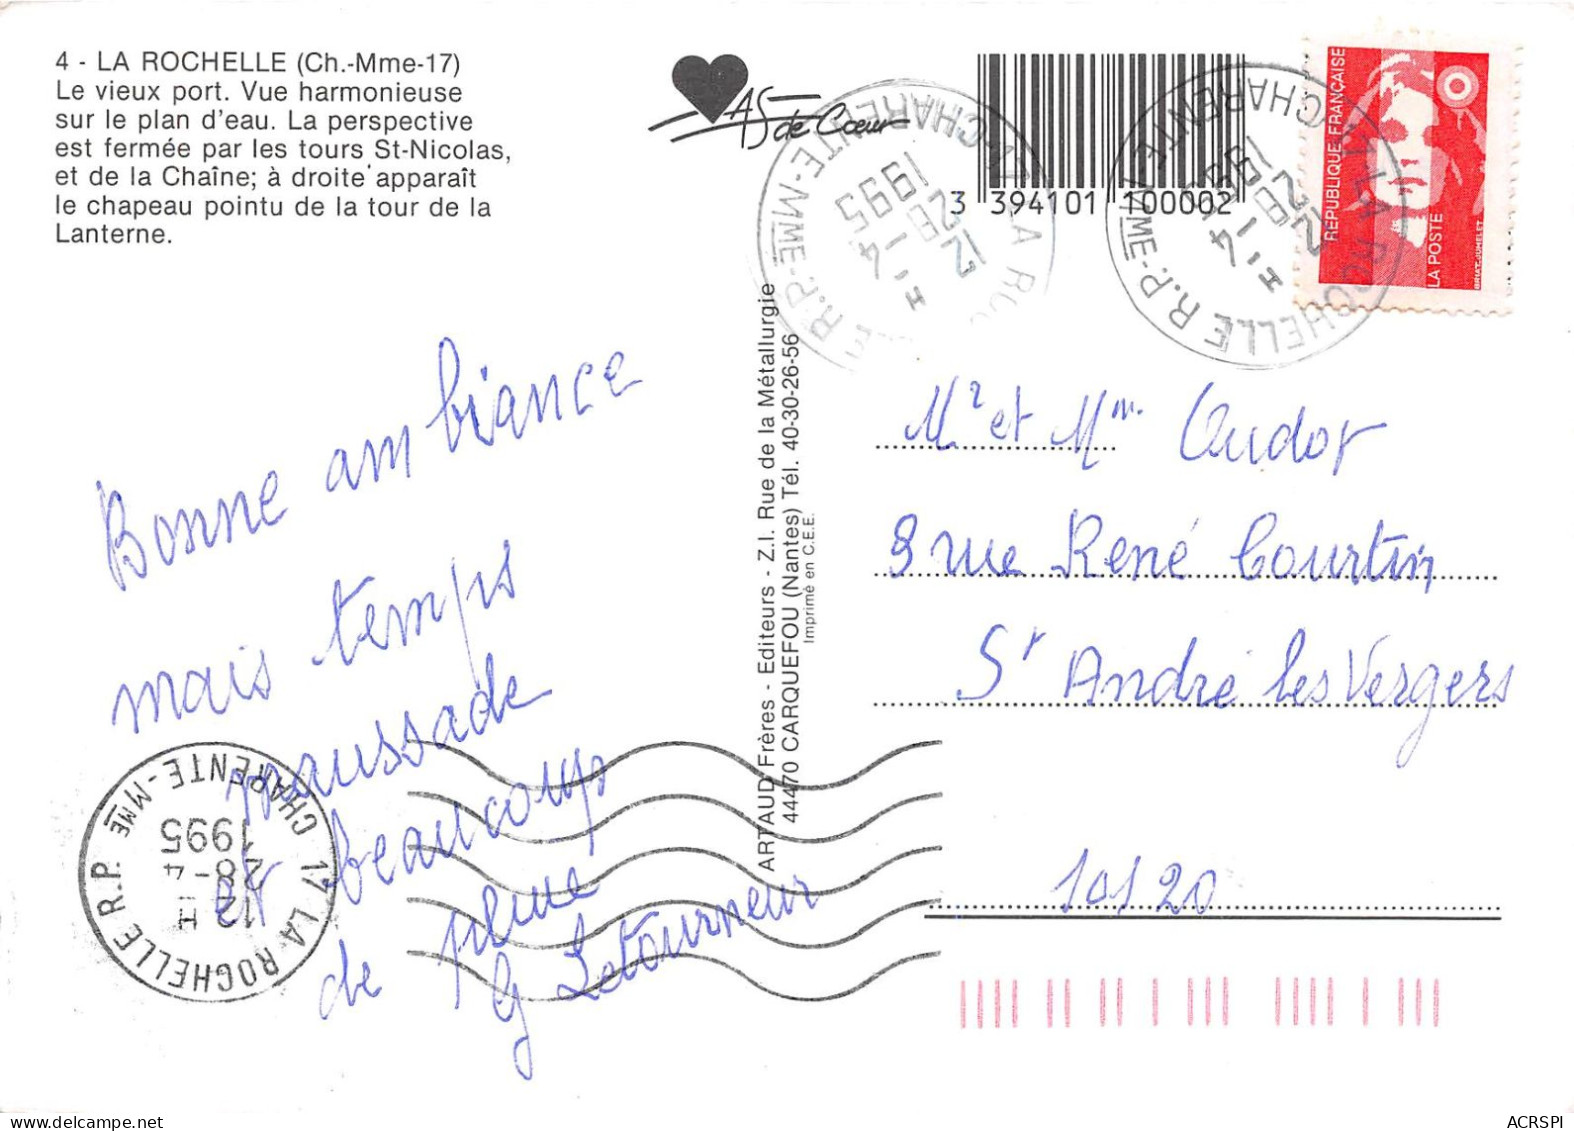 4 - LA ROCHELLE (Ch.-Mme-17)
Le vieux port. Vue harmonieuse
sur le plan d'eau. La perspective
est fermée par les tours St-Nicolas,
et de la Chaîne; à droite apparaît
le chapeau pointu de la tour de la
Lanterne.
AS de Cœur
3 394101 100002
RÉPUBLIQUE FRANÇAISE
LA POSTE
BRIAT-JUMELET
17-LA ROCHELLE R.P.
CHARENTE-MME
12 H
28-4
1995
17-LA ROCHELLE R.P.-MME-CHARENTE
12 H
28-4
1995
Bonne ambiance
mais temps
maussade
et beaucoup
de pluie
G Letourneur
17 LA ROCHELLE R.P.
CHARENTE-MME
12 H
28-4
1995
ARTAUD Frères - Editeurs - Z.I. Rue de la Métallurgie
44470 CARQUEFOU (Nantes) Tél. 40-30-26-56
Imprimé en C.E.E.
Mr et Mm Oudot
8 rue René Courtin
St André les Vergers
10120
ACRSPI